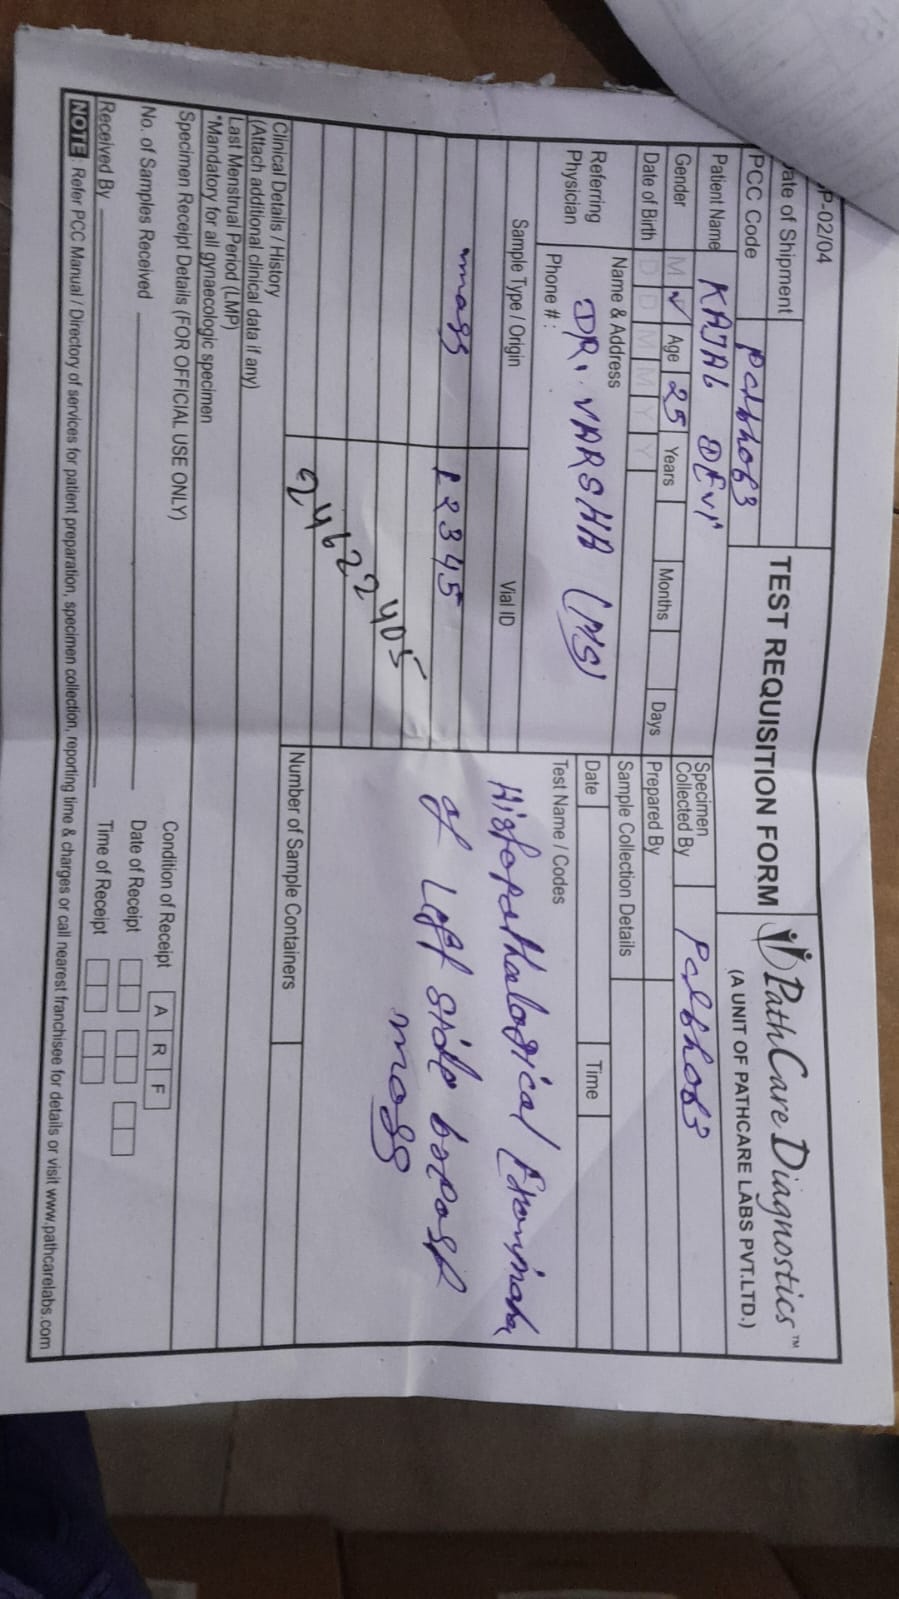 P-02/04
ate of Shipment
TEST REQUISITION FORM
PathCare Diagnostics™
(A UNIT OF PATHCARE LABS PVT.LTD.)
PCC Code
Patient Name KAJAL DEVI
Specimen Collected By
Gender M ✓ Age 25 Years Months Days
Prepared By
Date of Birth D D M M Y Y
Sample Collection Details
Referring Physician
Name & Address
DR. VARSHA (MS)
Phone # :
Date Time
Sample Type / Origin Vial ID Test Name / Codes
mass 12345
Histopathalogical
of Left side breast
mass
24622405
Number of Sample Containers
Clinical Details / History
(Attach additional clinical data if any)
Last Menstrual Period (LMP)
*Mandatory for all gynaecologic specimen
Specimen Receipt Details (FOR OFFICIAL USE ONLY)
Condition of Receipt A R F
No. of Samples Received
Date of Receipt
Received By
Time of Receipt
NOTE : Refer PCC Manual / Directory of services for patient preparation, specimen collection, reporting time & charges or call nearest franchisee for details or visit www.pathcarelabs.com